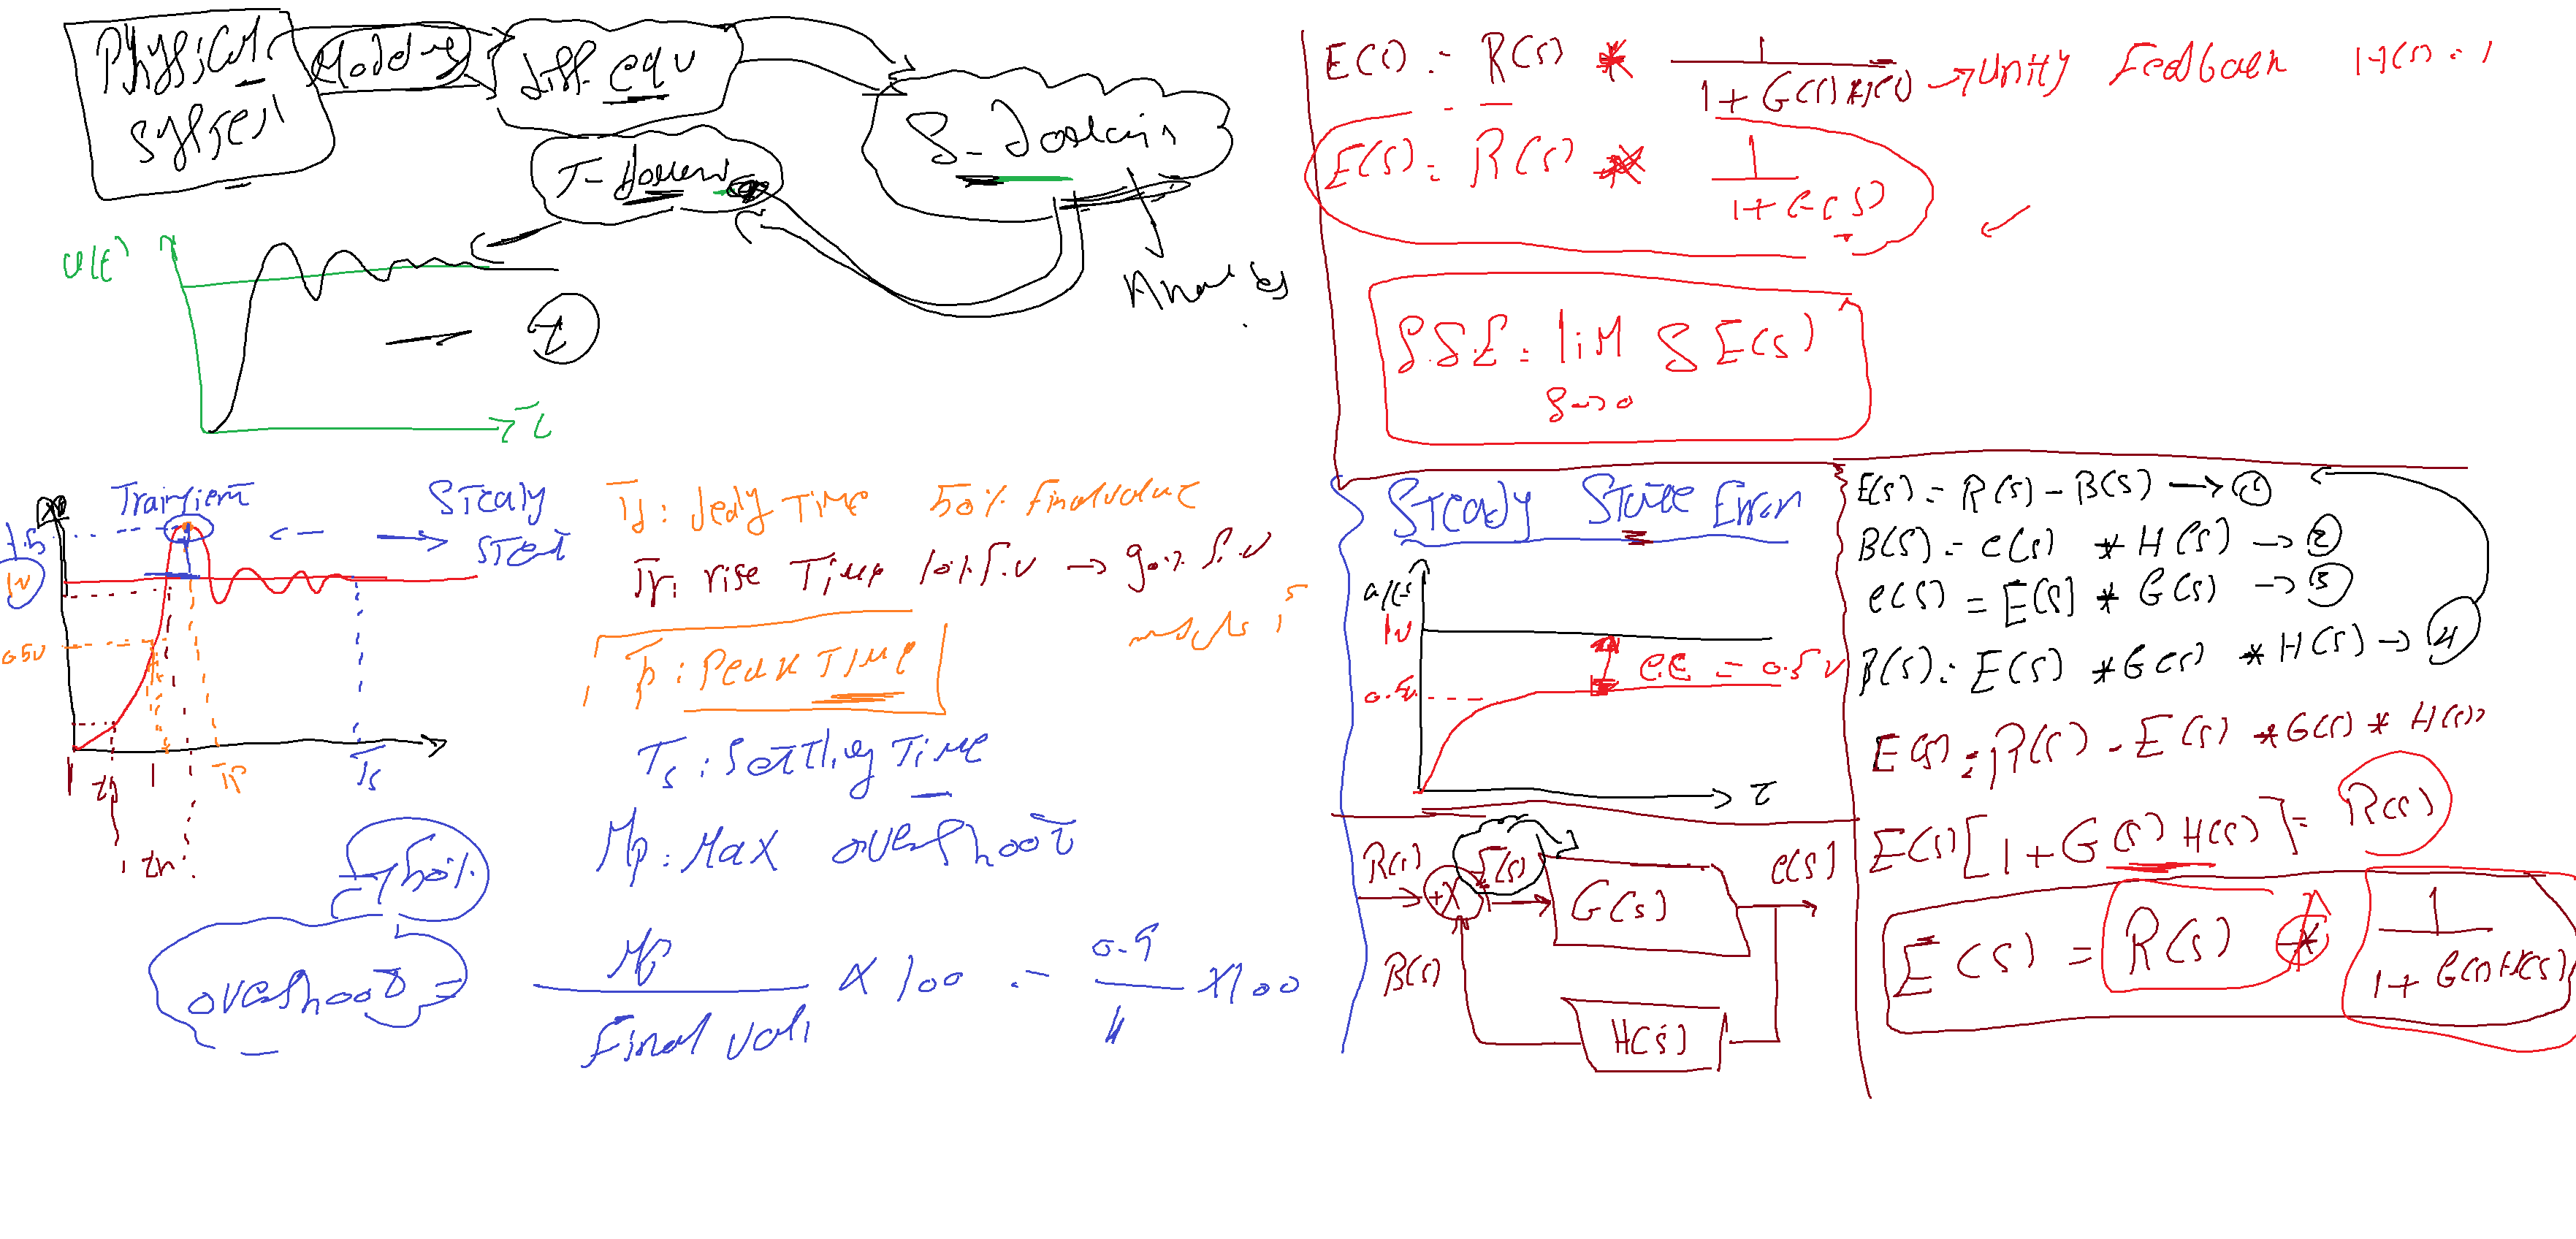 Physical
system
Modeling
diff. equ
S-Domain
T-Domain
U(t)
t
Transient
Steady
1.5
1v
0.5v
Tp
Ts
tr
Td: dealy Time 50% Final value
Tr: rise Time 10% f.v → 90% f.v
Tp: Peak Time
Ts: Settling Time
Mp: Max overshoot
50%
overshoot = Mp / Final val × 100 = 0.5 / 1 × 100
E(s) = R(s) * 1 / 1 + G(s) H(s) → Unity Feedback H(s) = 1
E(s) = R(s) * 1 / 1 + G(s)
S.S.E = lim S E(s)
s→0
Steady State Error
1v
0.5v
e.e = 0.5 v
t
R(s)
E(s)
G(s)
C(s)
B(s)
H(s)
E(s) = R(s) - B(s) → 1
B(s) = C(s) * H(s) → 2
C(s) = E(s) * G(s) → 3
B(s) = E(s) * G(s) * H(s) → 4
E(s) = R(s) - E(s) * G(s) * H(s)
E(s) [1 + G(s) H(s)] = R(s)
E(s) = R(s) * 1 / 1 + G(s) H(s)